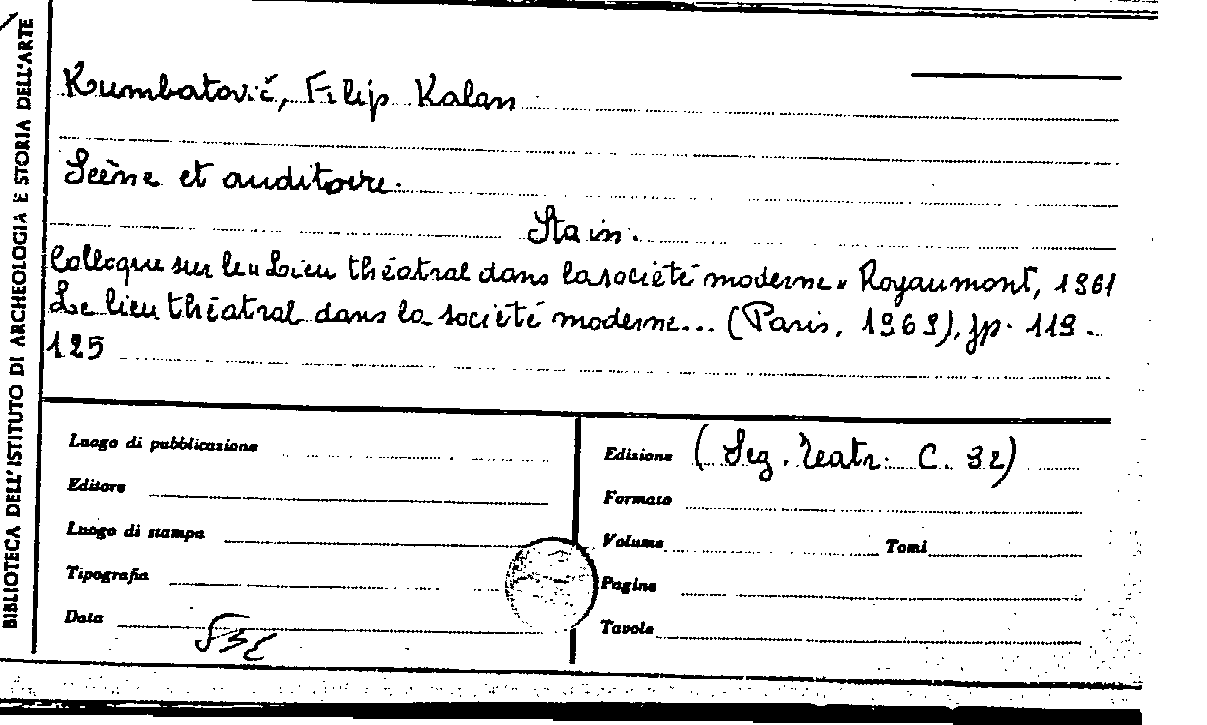 BIBLIOTECA DELL'ISTITUTO DI ARCHEOLOGIA E STORIA DELL'ARTE
Kumbatovič, Filip Kalan
Scène et auditoire.
Sta in.
Colloque sur le « Lieu théatral dans la société moderne » Royaumont, 1961
Le lieu théatral dans la société moderne... (Paris, 1969), pp. 119-
125
Luogo di pubblicazione
Editore
Luogo di stampa
Tipografia
Data
Edizione (Seg. Teatr. C. 92)
Formato
Volume Tomi
Pagine
Tavole